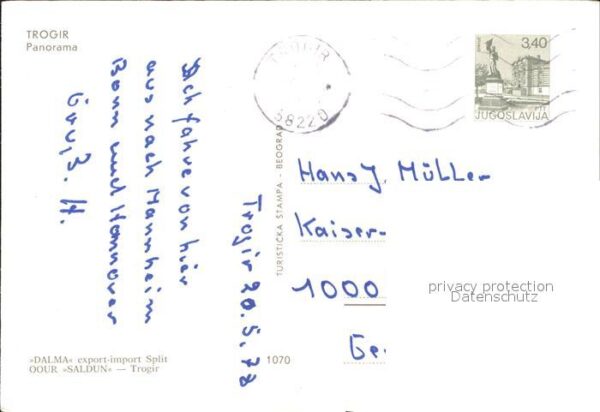 TROGIR
Panorama
Ich fahre von hier
aus nach Mannheim
Bonn und Hannover
H.
Trogir 20.5.78
TURISTIČKA ŠTAMPA - BEOGRAD
TROGIR
58220
3,40
JUGOSLAVIJA
Hans J. Müller
Kaiser-
1000
Ge
privacy protection
Datenschutz
»DALMA« export-import Split
OOUR »SALDUN« — Trogir
1070